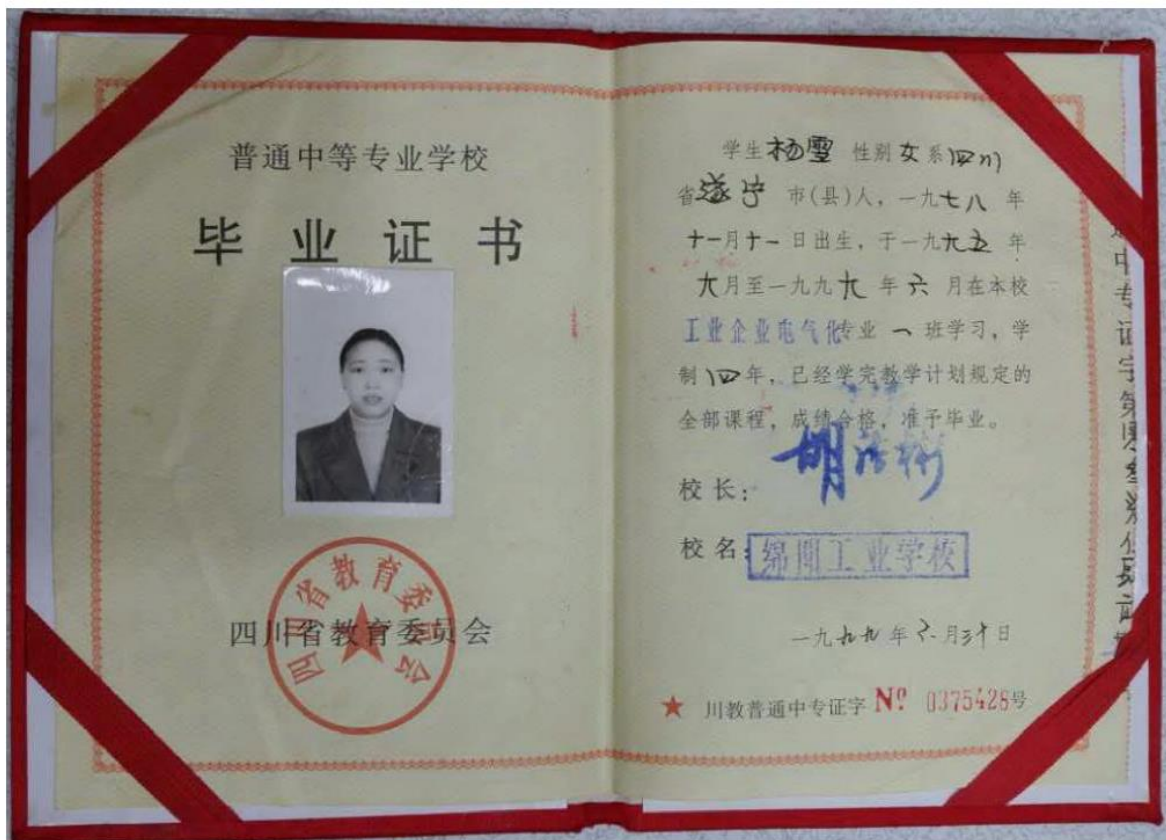 普通中等专业学校
毕业证书
四川省教育委员会
四川省教育委员会
学生杨雪 性别女系四川
省遂宁市(县)人,一九七八年
十一月十一日出生,于一九九五年
九月至一九九九年六月在本校
工业企业电气化专业一班学习,学
制四年,已经学完教学计划规定的
全部课程,成绩合格,准予毕业。
校长:
校名:绵阳工业学校
一九九九年六月三十日
★ 川教普通中专证字 Nº 0375428号
中专证字第